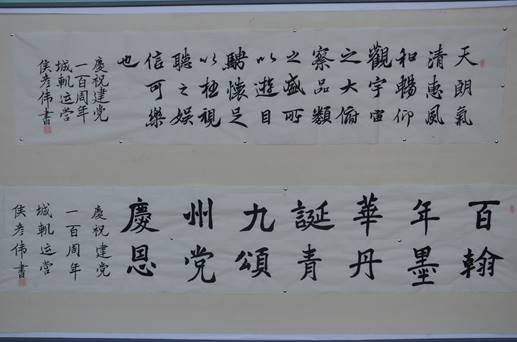 天朗氣
清惠風
和暢仰
觀宇宙
之大俯
察品類
之盛所
以遊目
騁懷足
以極視
聽之娛
信可樂
也
慶祝建党
一百周年
城軌运营
侯彦伟書
百翰
年墨
華丹
誕青
九頌
州党
慶恩
慶祝建党
一百周年
城軌运营
侯彦伟書